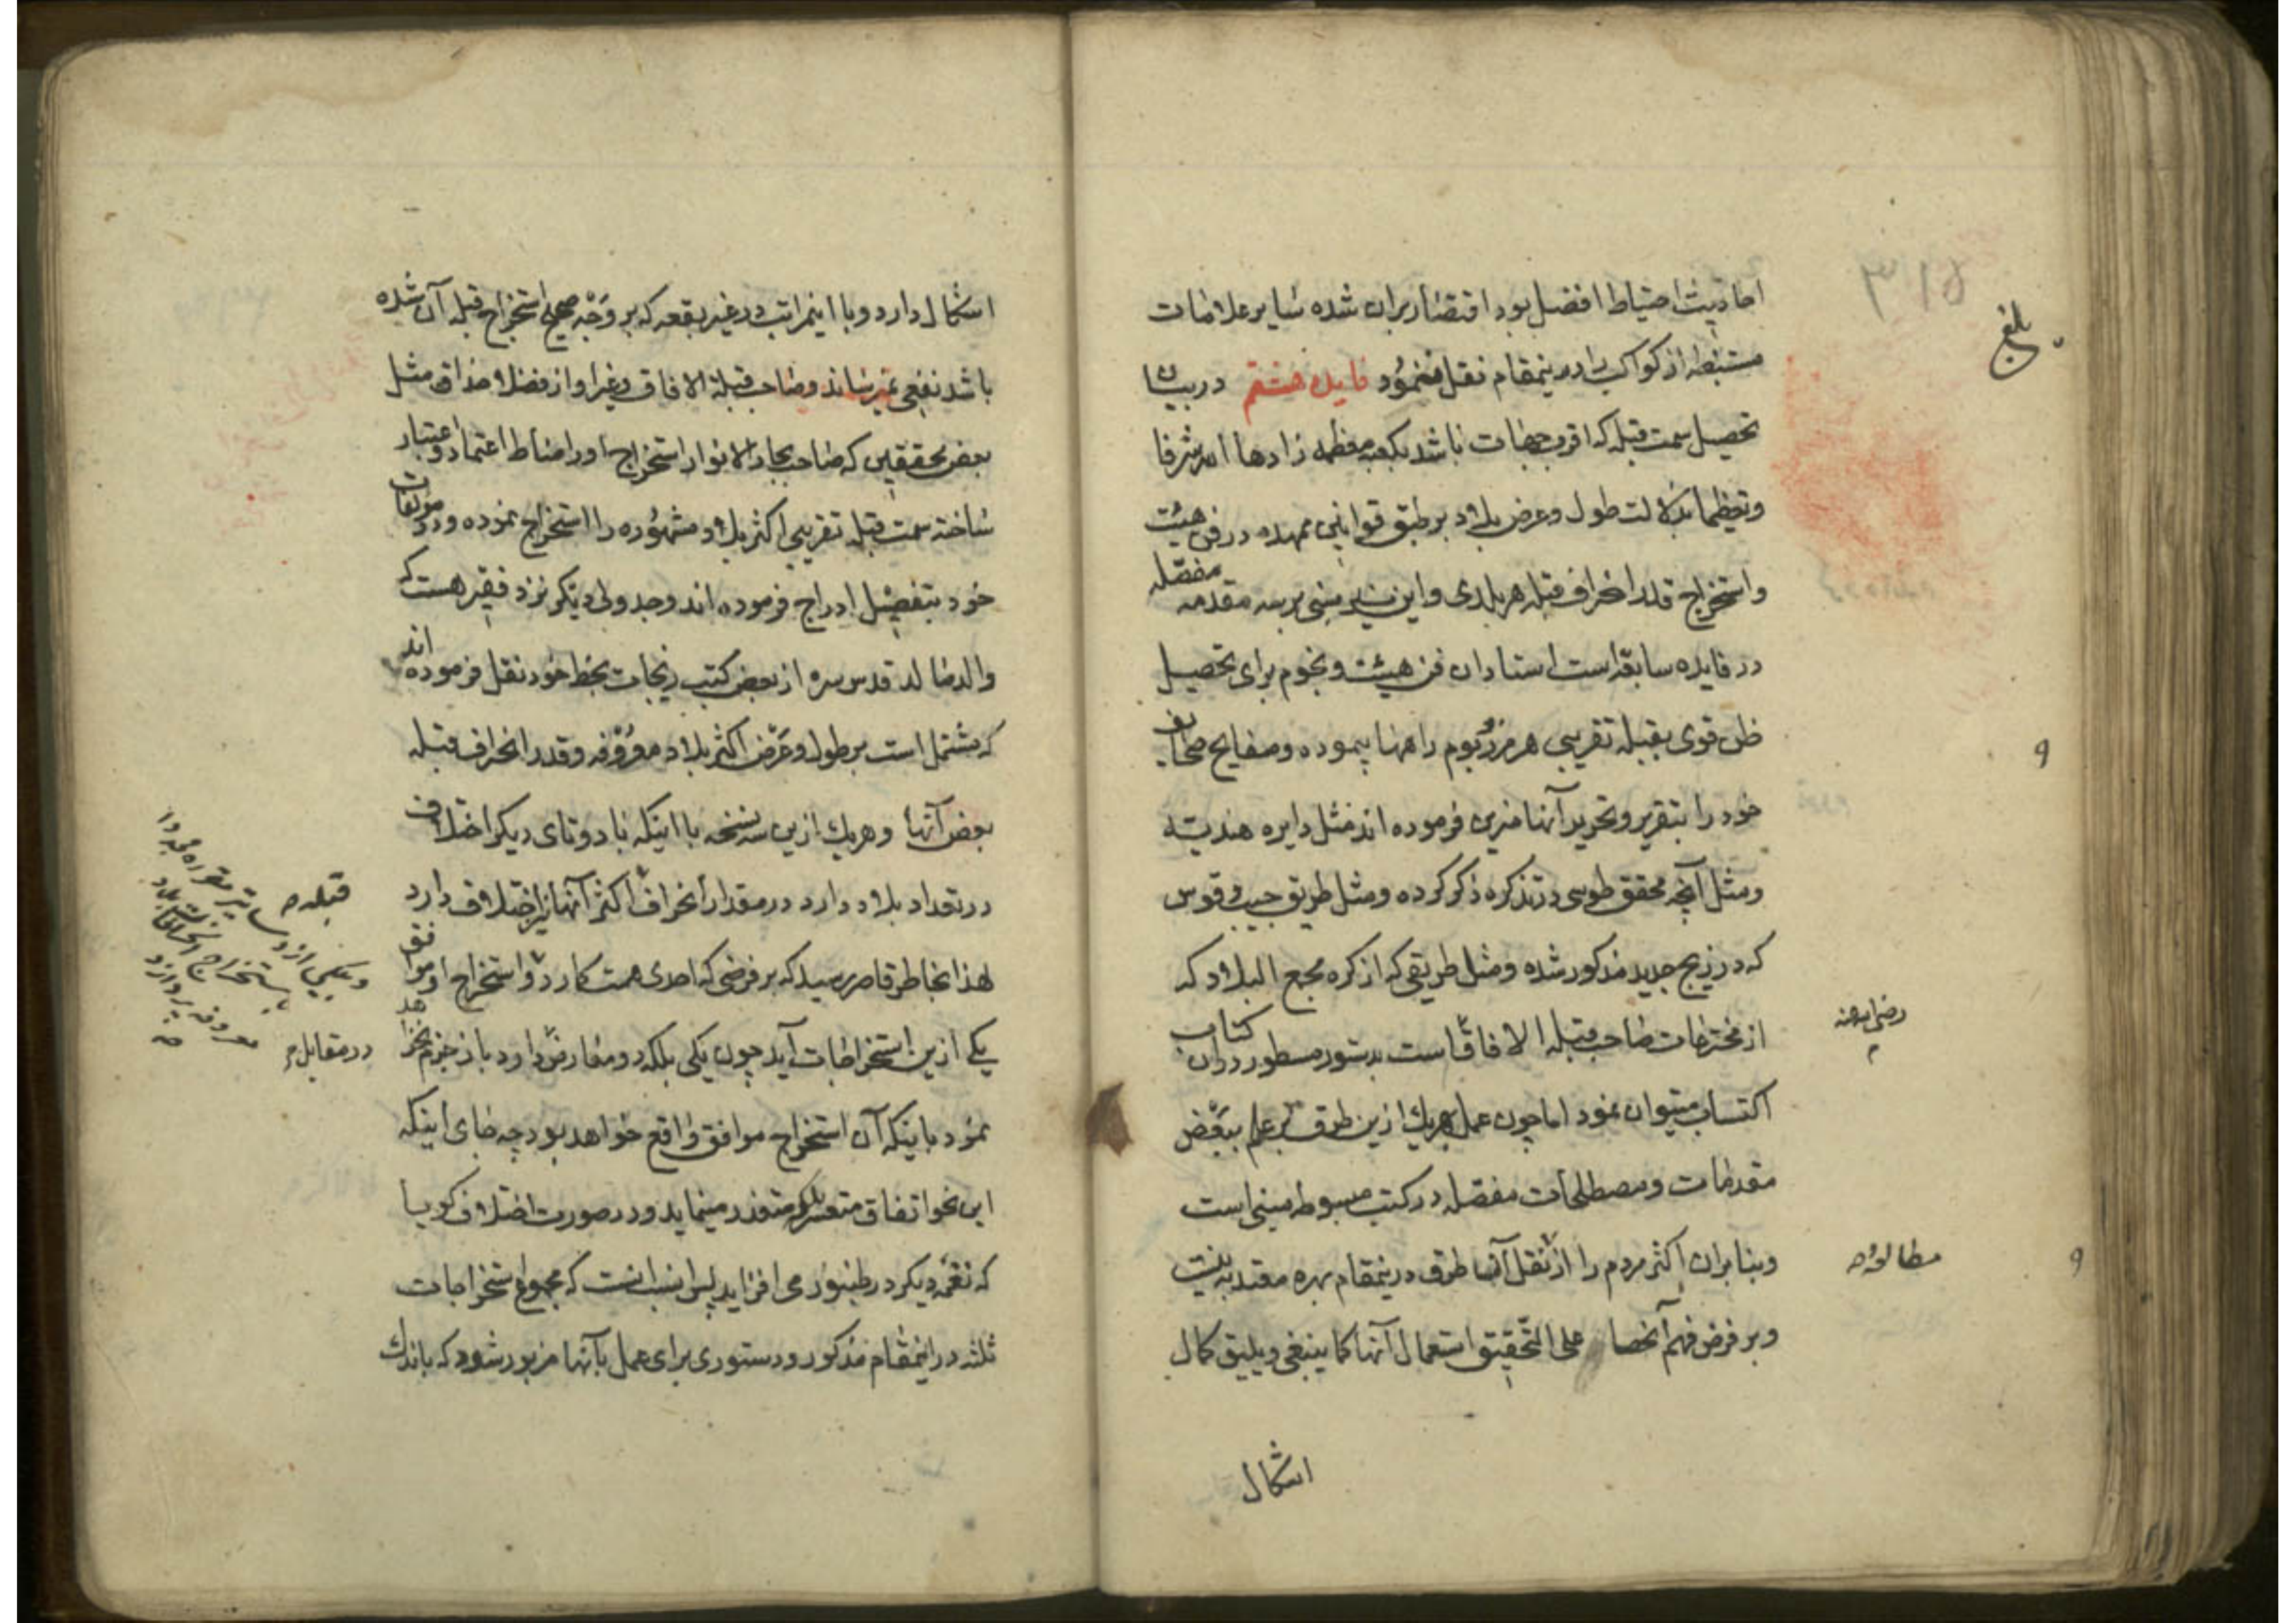 احادیث احتیاط افضل بود اقتصار بران شده سایر علامات
مستنبطه از کواکب را درینمقام نقل ننمود فایده هشتم در بیان
تحصیل سمت قبله که اقرب جهات باشد بکعبه معظمه زادها الله شرفا
وتعظیما بدلالت طول وعرض بلاد بر طبق قوانین ممهده در فن هیئت
واستخراج قدر انحراف قبله هر بلدی واین نیز مبنی بر سه مقدمه مفصله
در فایده سابقه است استادان فن هیئت ونجوم برای تحصیل
ظن قوی بقبله تقریبی هر مرز وبوم راهها پیموده وصفایح صحایف
خود را بتقریر وتحریر آنها مزین فرموده اند مثل دایره هندیه
ومثل آنچه محقق طوسی در تذکره ذکر کرده ومثل طریق جیب وقوس
که در زیج جدید مذکور شده ومثل طریقی که از کره مجمع البلاد که
از مخترعات صاحب قبلة الافاق است بدستور مسطور دران کتاب
اکتساب میتوان نمود اما چون عمل بهریک ازین طرق بر علم ببعض
مقدمات ومصطلحات مفصله در کتب مبسوطه مبنی است
وبنا بران اکثر مردم را از نقل آنها طرق درینمقام بهره معتد به نیست
وبر فرض فهم آنها علی التحقیق استعمال آنها کما ینبغی ویلیق کمال
اشکال
بلغ
رضی الله عنه
مطالعه
اشکال دارد وبا اینمراتب در غیر بقعه که بر وجه صحیح استخراج قبله آن شده
باشد نفعی نمیرساند وصاحب قبلة الافاق وغیر او از فضلاء حذاق مثل
بعض محققین که صاحب بحار الانوار استخراج او را مناط اعتماد واعتبار
ساخته سمت قبله تقریبی اکثر بلاد مشهوره را استخراج نموده ودر مولفات
خود بتفصیل ادراج فرموده اند وجدولی دیگر نزد فقیر هست که
والد ماجد قدس سره از بعض کتب زیجات بخط خود نقل فرموده اند
که مشتمل است بر طول وعرض اکثر بلاد معروفه وقدر انحراف قبله
بعض آنها وهریک ازین سه نسخه با اینکه با دوتای دیگر اختلاف
در تعداد بلاد دارد در مقدار انحراف اکثر آنها نیز اختلاف دارد
لهذا بخاطر قاصر میرسد که بر فرضی که احدی همت کارد واستخراج او موافق
یکی ازین استخراجات آید چون یکی بلکه دو معارض دارد باز جزم نخواهد
نمود باینکه آن استخراج موافق واقع خواهد بود چه جای اینکه
این نحو اتفاق متعسر بلکه متعذر مینماید ودر صورت اختلاف گویا
که نغمه دیگر در طنبور می افزاید پس انسب آنست که مجموع استخراجات
ثلثه در اینمقام مذکور ودستوری برای عمل بآنها مزبور شود که باندک
قبله
در مقابل